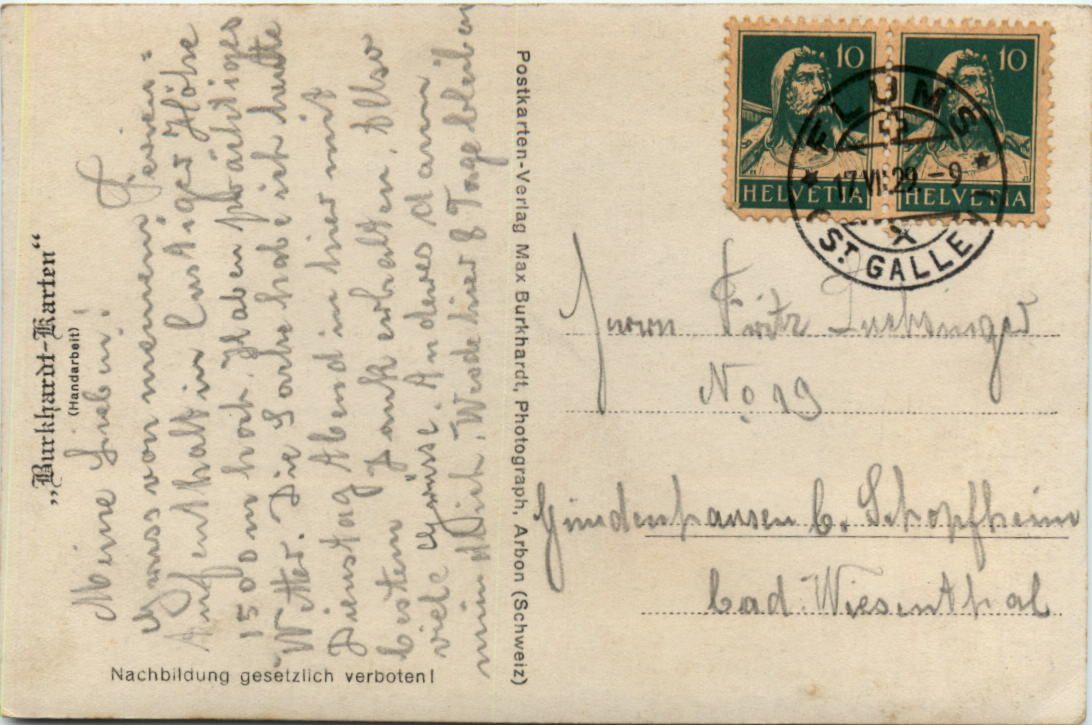 „Burkhardt-Karten“
(Handarbeit)
Meine Lieben!
Gruss von meinem Ferien=
Aufenthalt in Lustiger Höhe
1500 m hoch. Haben prächtiges
Wetter. Die Sache habe ich heute
Dienstag Abend in hier mit
bestem Dank erhalten. Also
viele Grüsse. Anderes dann
mündlich. Werde hier 8 Tage bleiben
Nachbildung gesetzlich verboten!
Postkarten-Verlag Max Burkhardt, Photograph, Arbon (Schweiz)
10 10
HELVETIA HELVETIA
FLUMS
17.VII.29.-9
(ST. GALLEN)
Herrn Fritz Luchsinger
No 19
Gündenhausen b. Schopfheim
bad. Wiesenthal